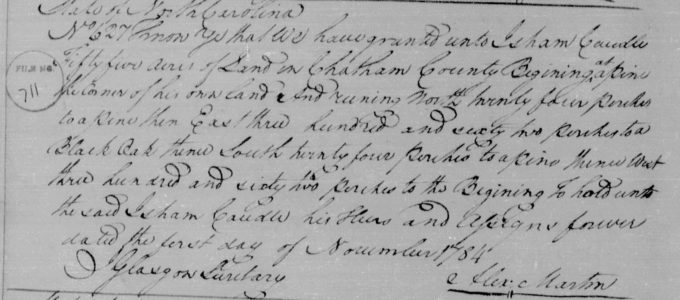 State of North Carolina
No 627 Know Ye that We have granted unto Isham Caudle
Fifty five acres of Land in Chatham County Begining at a pine
the corner of his own land and runing North twenty four perches
to a pine then East three hundred and sixty two perches to a
Black Oak thence South twenty four perches to a pine thence West
three hundred and sixty two perches to the Begining to hold unto
the said Isham Caudle his Heirs and Assigns forever
dated the first day of November 1784
J Glasgow Secretary
Alex: Martin
FILM NO.
711